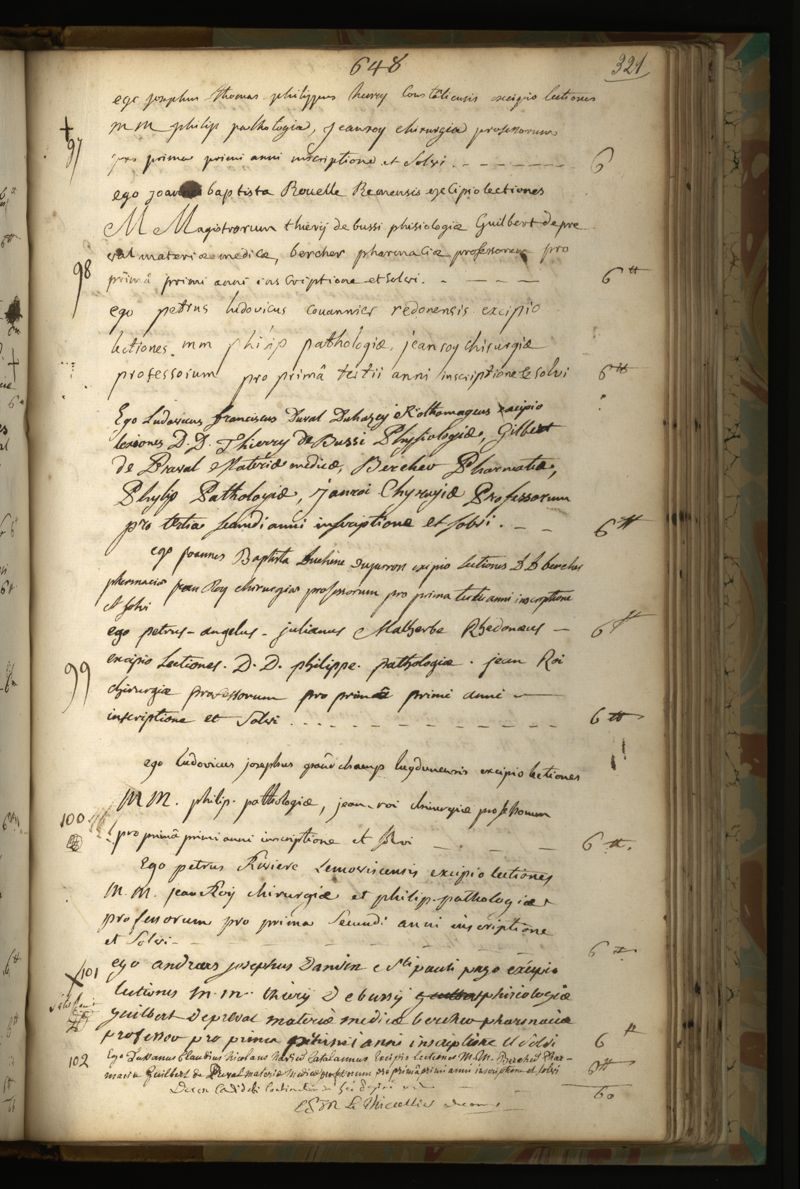 648
321
ego josephus thomas philippus hervy Constătiensis excipio lectiones
M M philip pathologiæ, jeanroy chirurgiæ professorum
97
pro prima primi anni inscriptione et Solvi . - - - - - - - 6
ego joannes baptista Rouelle Remensis excipio lectiones
M Magistrorum thierij de bussi phisiologiæ Guilbert de pre
val materiæ medicæ, bercher pharmaciæ professorum pro
98
primâ primi anni inscriptione et solvi. - - - - - 6 tt
ego petrus ludovicus couannier redonensis excipio
lectiones mm philip pathologiæ, jeanroy chirurgiæ
professorum pro primâ tertii anni inscriptione et solvi 6 tt
Ego Ludovicus franciscus Duval Duhazey Rothomageus excipio
lexiones D. D. Thierry De Bussi Physiologiæ, Gilbert
de Praval Materiæ medicæ, Bercher Pharmatiæ,
Phylip Pathologiæ, Janroi Chyrugiæ Professorum
pro tertia secundi anni inscriptione et solvi . - - 6 tt
ego joannes Baptista excipio lectiones D D bercher
pharmaciæ jean Roy chirurgiæ professorum pro prima tertii anni inscriptione
et solvi
6 tt
ego petrus - angelus - julianus Malherbe Rhedonæus -
excipio Lectiones. D. D. philippe. pathologiæ. jean Roi
99
chirurgiæ professorum pro primâ primi anni -
inscriptione et Solvi . . . - - - - - - - - - 6 tt
ego ludovicus josephus grandchamp lugdunensis excipio lectiones
M M. philip. pathologiæ, jean-roi chirurgiæ professorum
100
pro primâ primi anni inscriptione et solvi - - - 6 tt.
Ego petrus Riviere Lemovicensis excipio lectiones
M. M. jean Roÿ chirurgiæ et philip. pathologiæ
professorum pro prima Secundi anni inscriptione
et Solvi - - - - - - - 6 tt
101
ego andreas josephus Danvin e Sti pauli pago excipio
lectiones m. m. thiery Debussy phisiologiæ
guilbert Depreval materiæ medicæ bercher pharmaciæ
professor pro prima primi anni inscriptione et solvi 6 tt
102
Ego Claudius Nicolaus Catalaunus Excipio Lectiones M. M. Bercher Phar-
maciæ Guilbert de Preval materiæ medicæ professorum pro primâ primi anni inscriptione et solvi 6 tt
60
Le Thieullier decanus